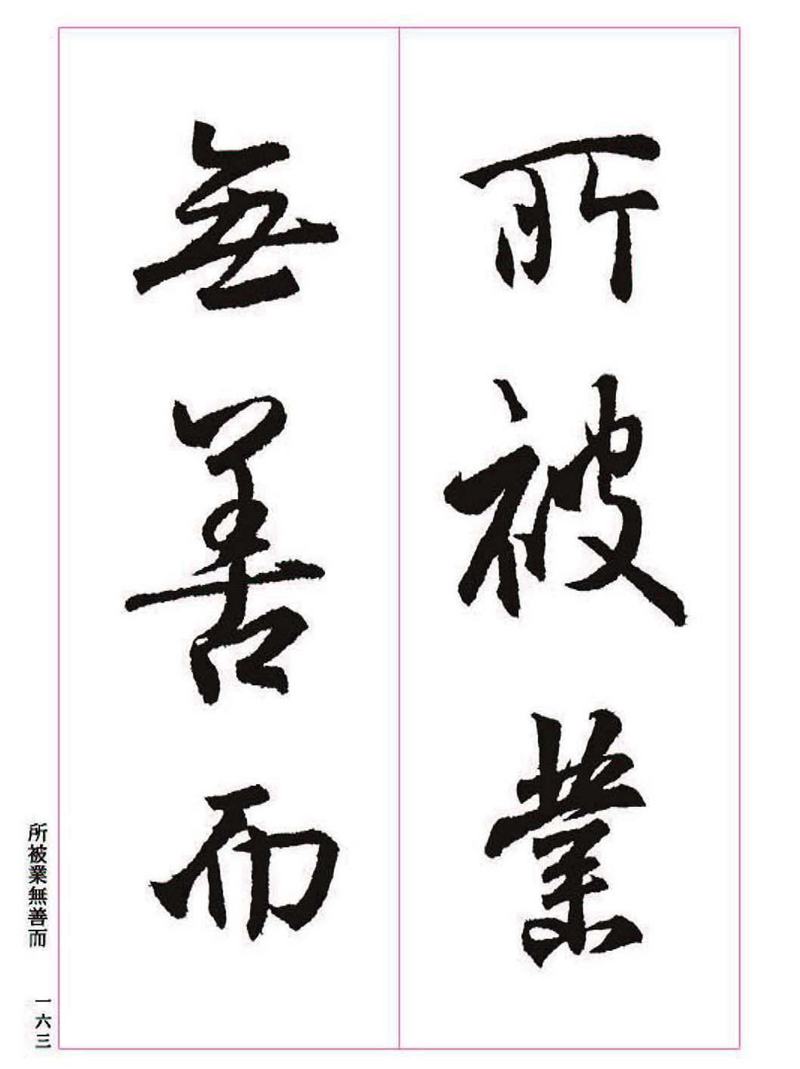 所被業
無善而
所被業無善而
一六三